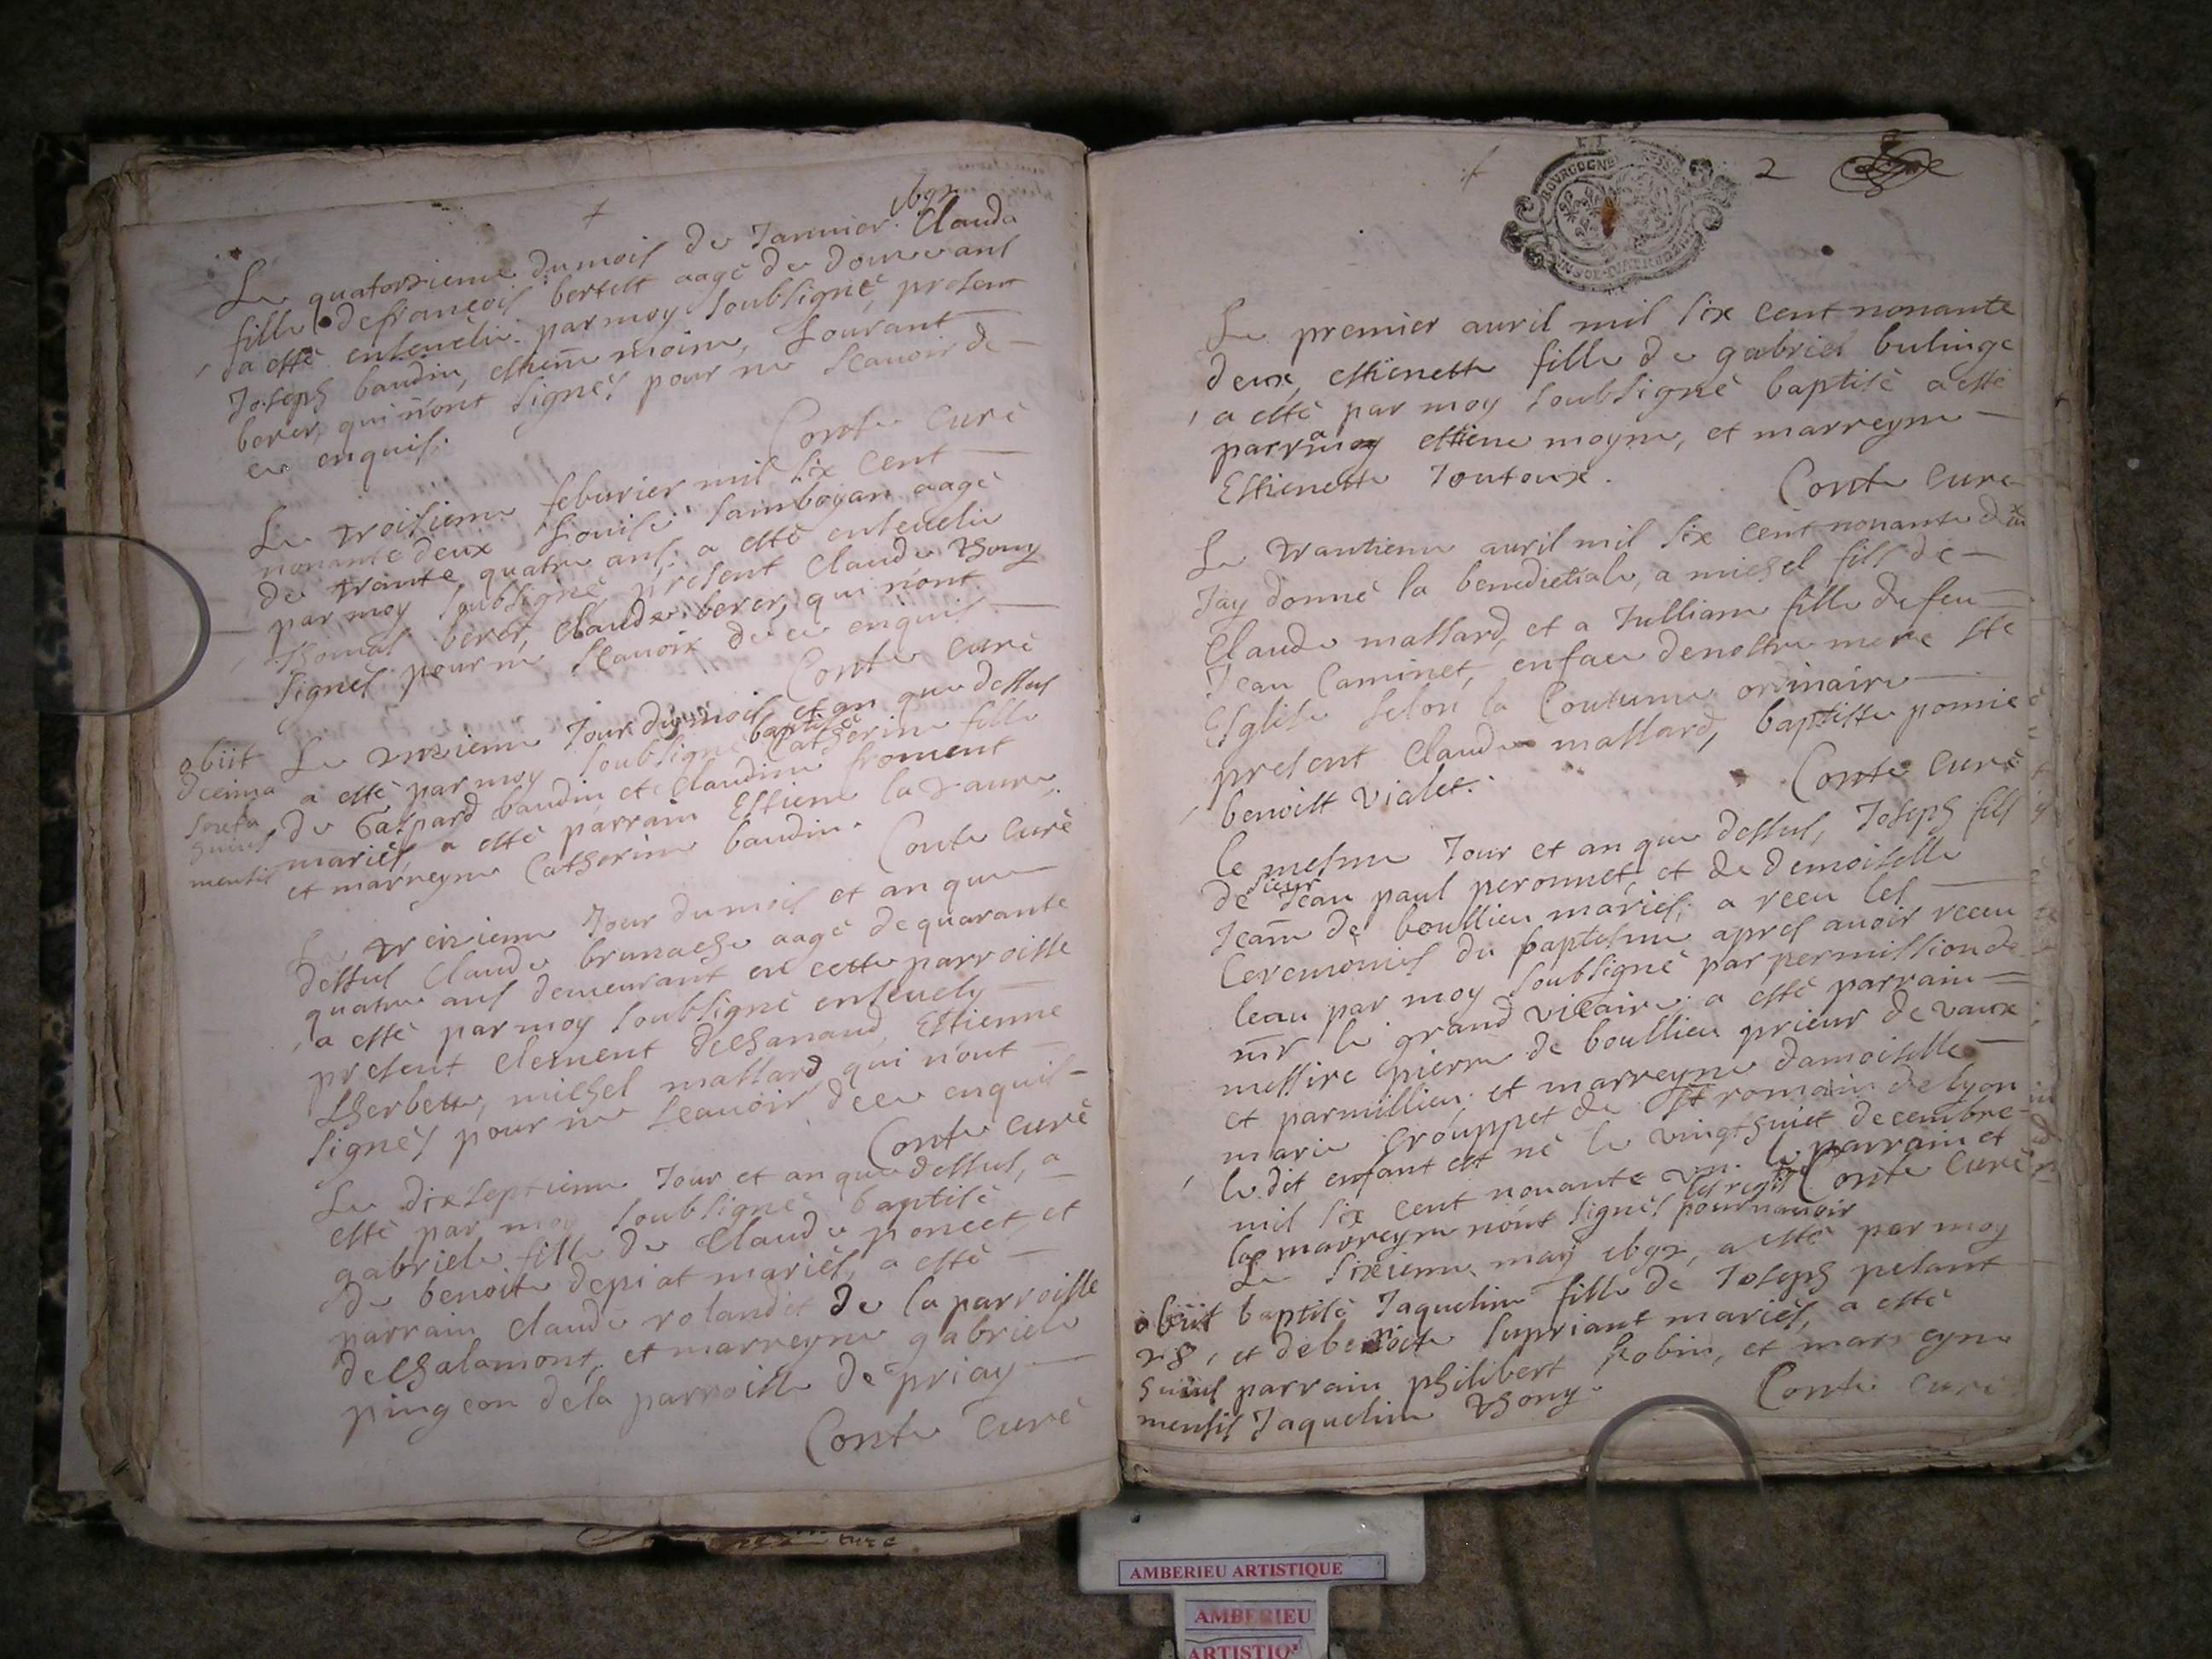 Le quatorzieme du mois de Januier 1692 Clauda
fille de francois bertett aagè de douze ans
a estè enseuelie par moy soubsignè, present
Joseph baudin, estiene moine, Lourant
berer, qui n'ont signés pour ne scauoir de
ce enquis.
Conte curè
Le troisieme feburier mil six cent
nonante deux Louise sainboyan aagè
de trante quatre ans, a estè enseuelie
par moy soubsignè present Claude Thony
Thomas berer, claude berer, qui n'ont
signés pour ne scauoir de ce enquis
Conte curè
Le onzieme Jour du mois et an que dessus
a estè par moy soubsignè baptisèe Catherine fille
de Gaspard baudin et Claudine froment
mariés, a estè parrain Estiene la Faure,
et marreyne Catherine baudin.
Conte curè
obiit
decima
sexta
huius
mensis
Le treizieme Jour du mois et an que
dessus Claude brunache aagè de quarante
quatre ans demeurant en cette parroisse
a estè par moy soubsignè enseuely
present clement dechanaud, Estienne
Lherbette, michel massard qui n'ont
signés pour ne scauoir de ce enquis
Conte curè
Le dixseptieme Jour et an que dessus, a
estè par moy soubsignè baptisè
gabriele fille de Claude poncet, et
de benoite depiat mariés, a estè
parrain claude rolandet de la parroisse
de Chalamont, et marreyne gabriele
pingeon dela parroisse de priay
Conte Curè
2
BOVRGOGNE
Le premier auril mil six cent nonante
deux, estienette fille de gabriel bulinge
a estè par moy soubsignè baptisè a estè
parrain estiene moyne, et marreyne
Estienette Toutoux.
Conte Curè
Le trantieme auril mil six cent nonante deux
Jay donnè la benediction, a michel fils de
Claude massard, et a Julliane fille de feu
Jean Caminet, en face de nostre mere ste
Esglise selon la Coutume ordinaire
present Claude massard, baptiste pomie
benoist vialet.
Conte Curè
le mesme Jour et an que dessus, Joseph fils
de sieur Jean paul peronnet, et de demoiselle
Jeanne de boullieu mariés, a receu les
Ceremonies du baptesme apres auoir receu
leau par moy soubsignè par permission de
mr le grand vicaire a estè parrain
messire pierre de boullieu prieur de vaux
et parmillieu et marreyne damoiselle
marie Grouppet de St romain de lyon
le dit enfant est nè le vingthuict decembre
mil six cent nonante un. le parrain et
la marreyne n'ont signès pour n'auoir
Conte Curè
Le sixieme may 1692, a estè par moy
baptisè Jaqueline fille de Joseph pelant
et de benoite supriant mariés, a estè
parrain philibert Robin, et marreyne
Jaqueline Thony.
Conte Curè
obiit
28
huius
mensis
AMBERIEU ARTISTIQUE
AMBERIEU
ARTISTIQ